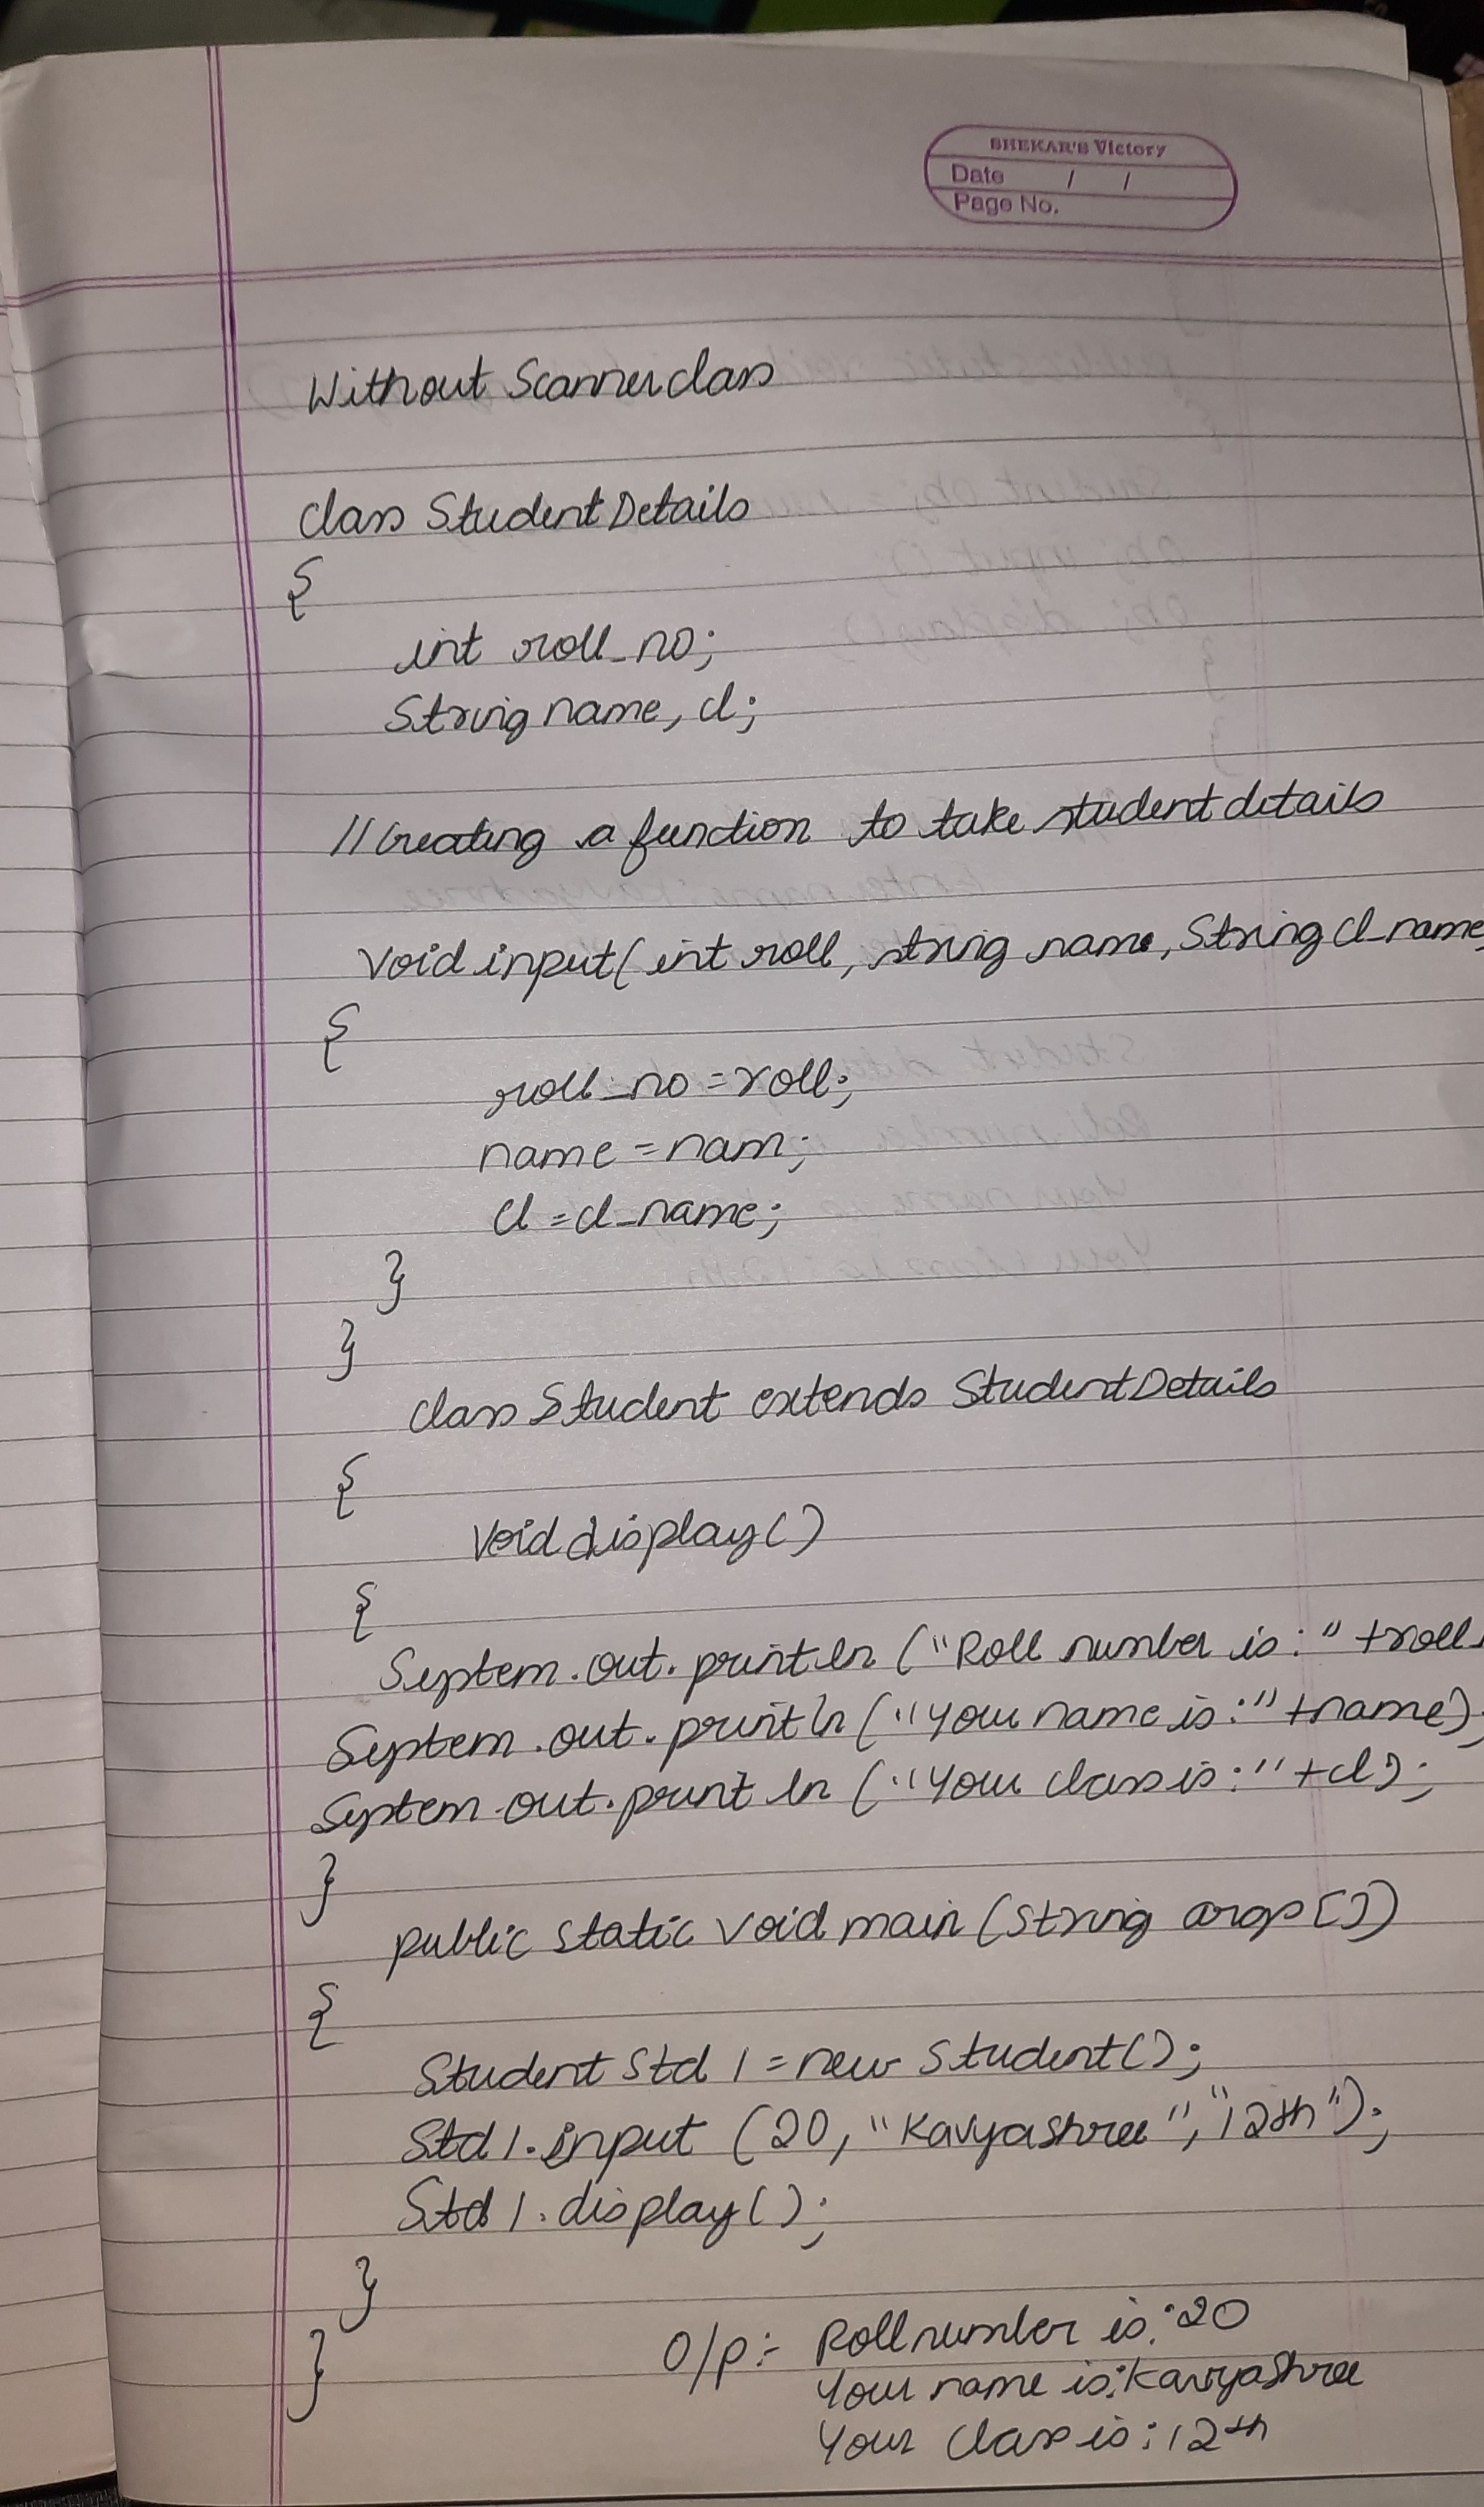 SHEKAR'S Victory
Date / /
Page No.
Without Scanner class
class StudentDetails
{
int roll_no;
String name, cl;
//Creating a function to take student details
void input( int roll, string name, String cl_name
{
roll_no = roll;
name = nam;
cl = cl_name;
}
}
class Student extends StudentDetails
{
void display()
{
System.out.println ("Roll number is:" +roll
System.out.println ("Your name is:" +name);
System.out.println ("Your class is:" +cl);
}
public static void main (String args[])
{
Student Std 1 = new Student();
Std 1.input (20, "Kavyashree", "12th");
Std 1.display();
}
}
O/p:- Roll number is:20
Your name is:Kavyashree
Your class is:12th